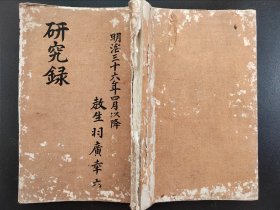 研究録
明治三十六年四月以降
教生羽廣幸六